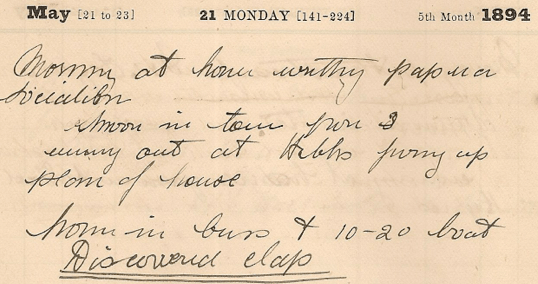 May [21 to 23] 21 MONDAY [141-224] 5th Month 1894
Morning at home writing paper on
Socialism
in town from 3
evening out at Webbs going up
plan of house
home in buss & 10-20 boat
Discovered clap